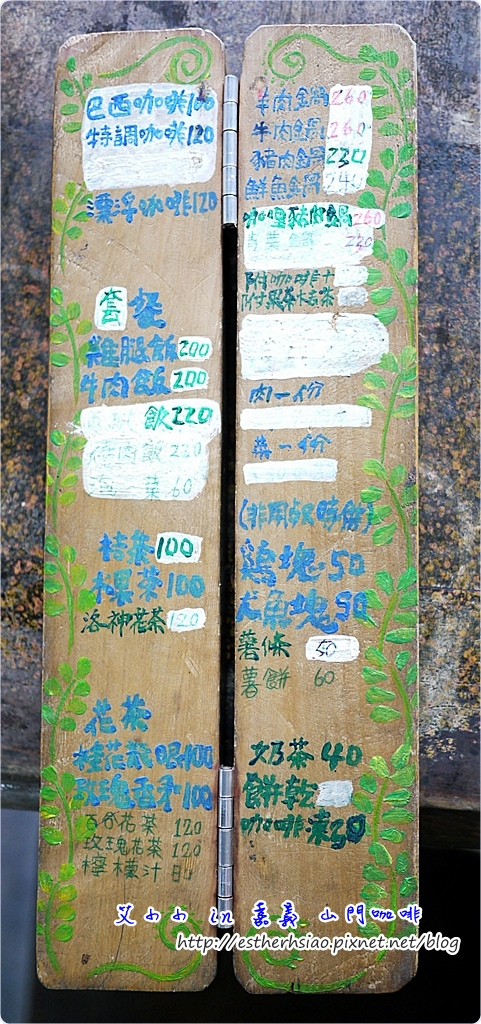 巴西咖啡100
特調咖啡120
漂浮咖啡120
套餐
雞腿飯200
牛肉飯200
飲220
肉飯220
菜60
桔茶100
水果茶100
洛神花茶120
花茶
桂花 100
玫瑰香 100
百合花茶 120
玫瑰花茶 120
檸檬汁
羊肉鍋260
牛肉鍋260
豬肉鍋230
鮮魚鍋240
咖哩豬肉鍋260
230
附咖啡
附果茶 桔茶
肉一份
菜一份
(非用餐時餅)
鷄塊50
魚塊50
薯條 50
薯餅 60
奶茶40
餅乾
咖啡凍30
艾小小 in 嘉義 山門咖啡
http://estherhsiao.pixnet.net/blog